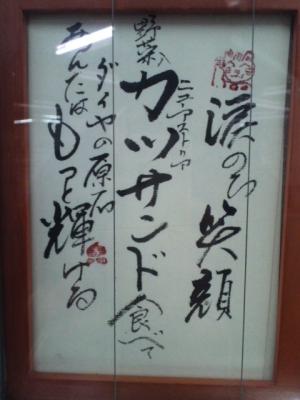 涙のち笑顔
野菜入
ニューアストリヤ
カツサンド食べて
ダイヤの原石
あんたはもっと輝ける